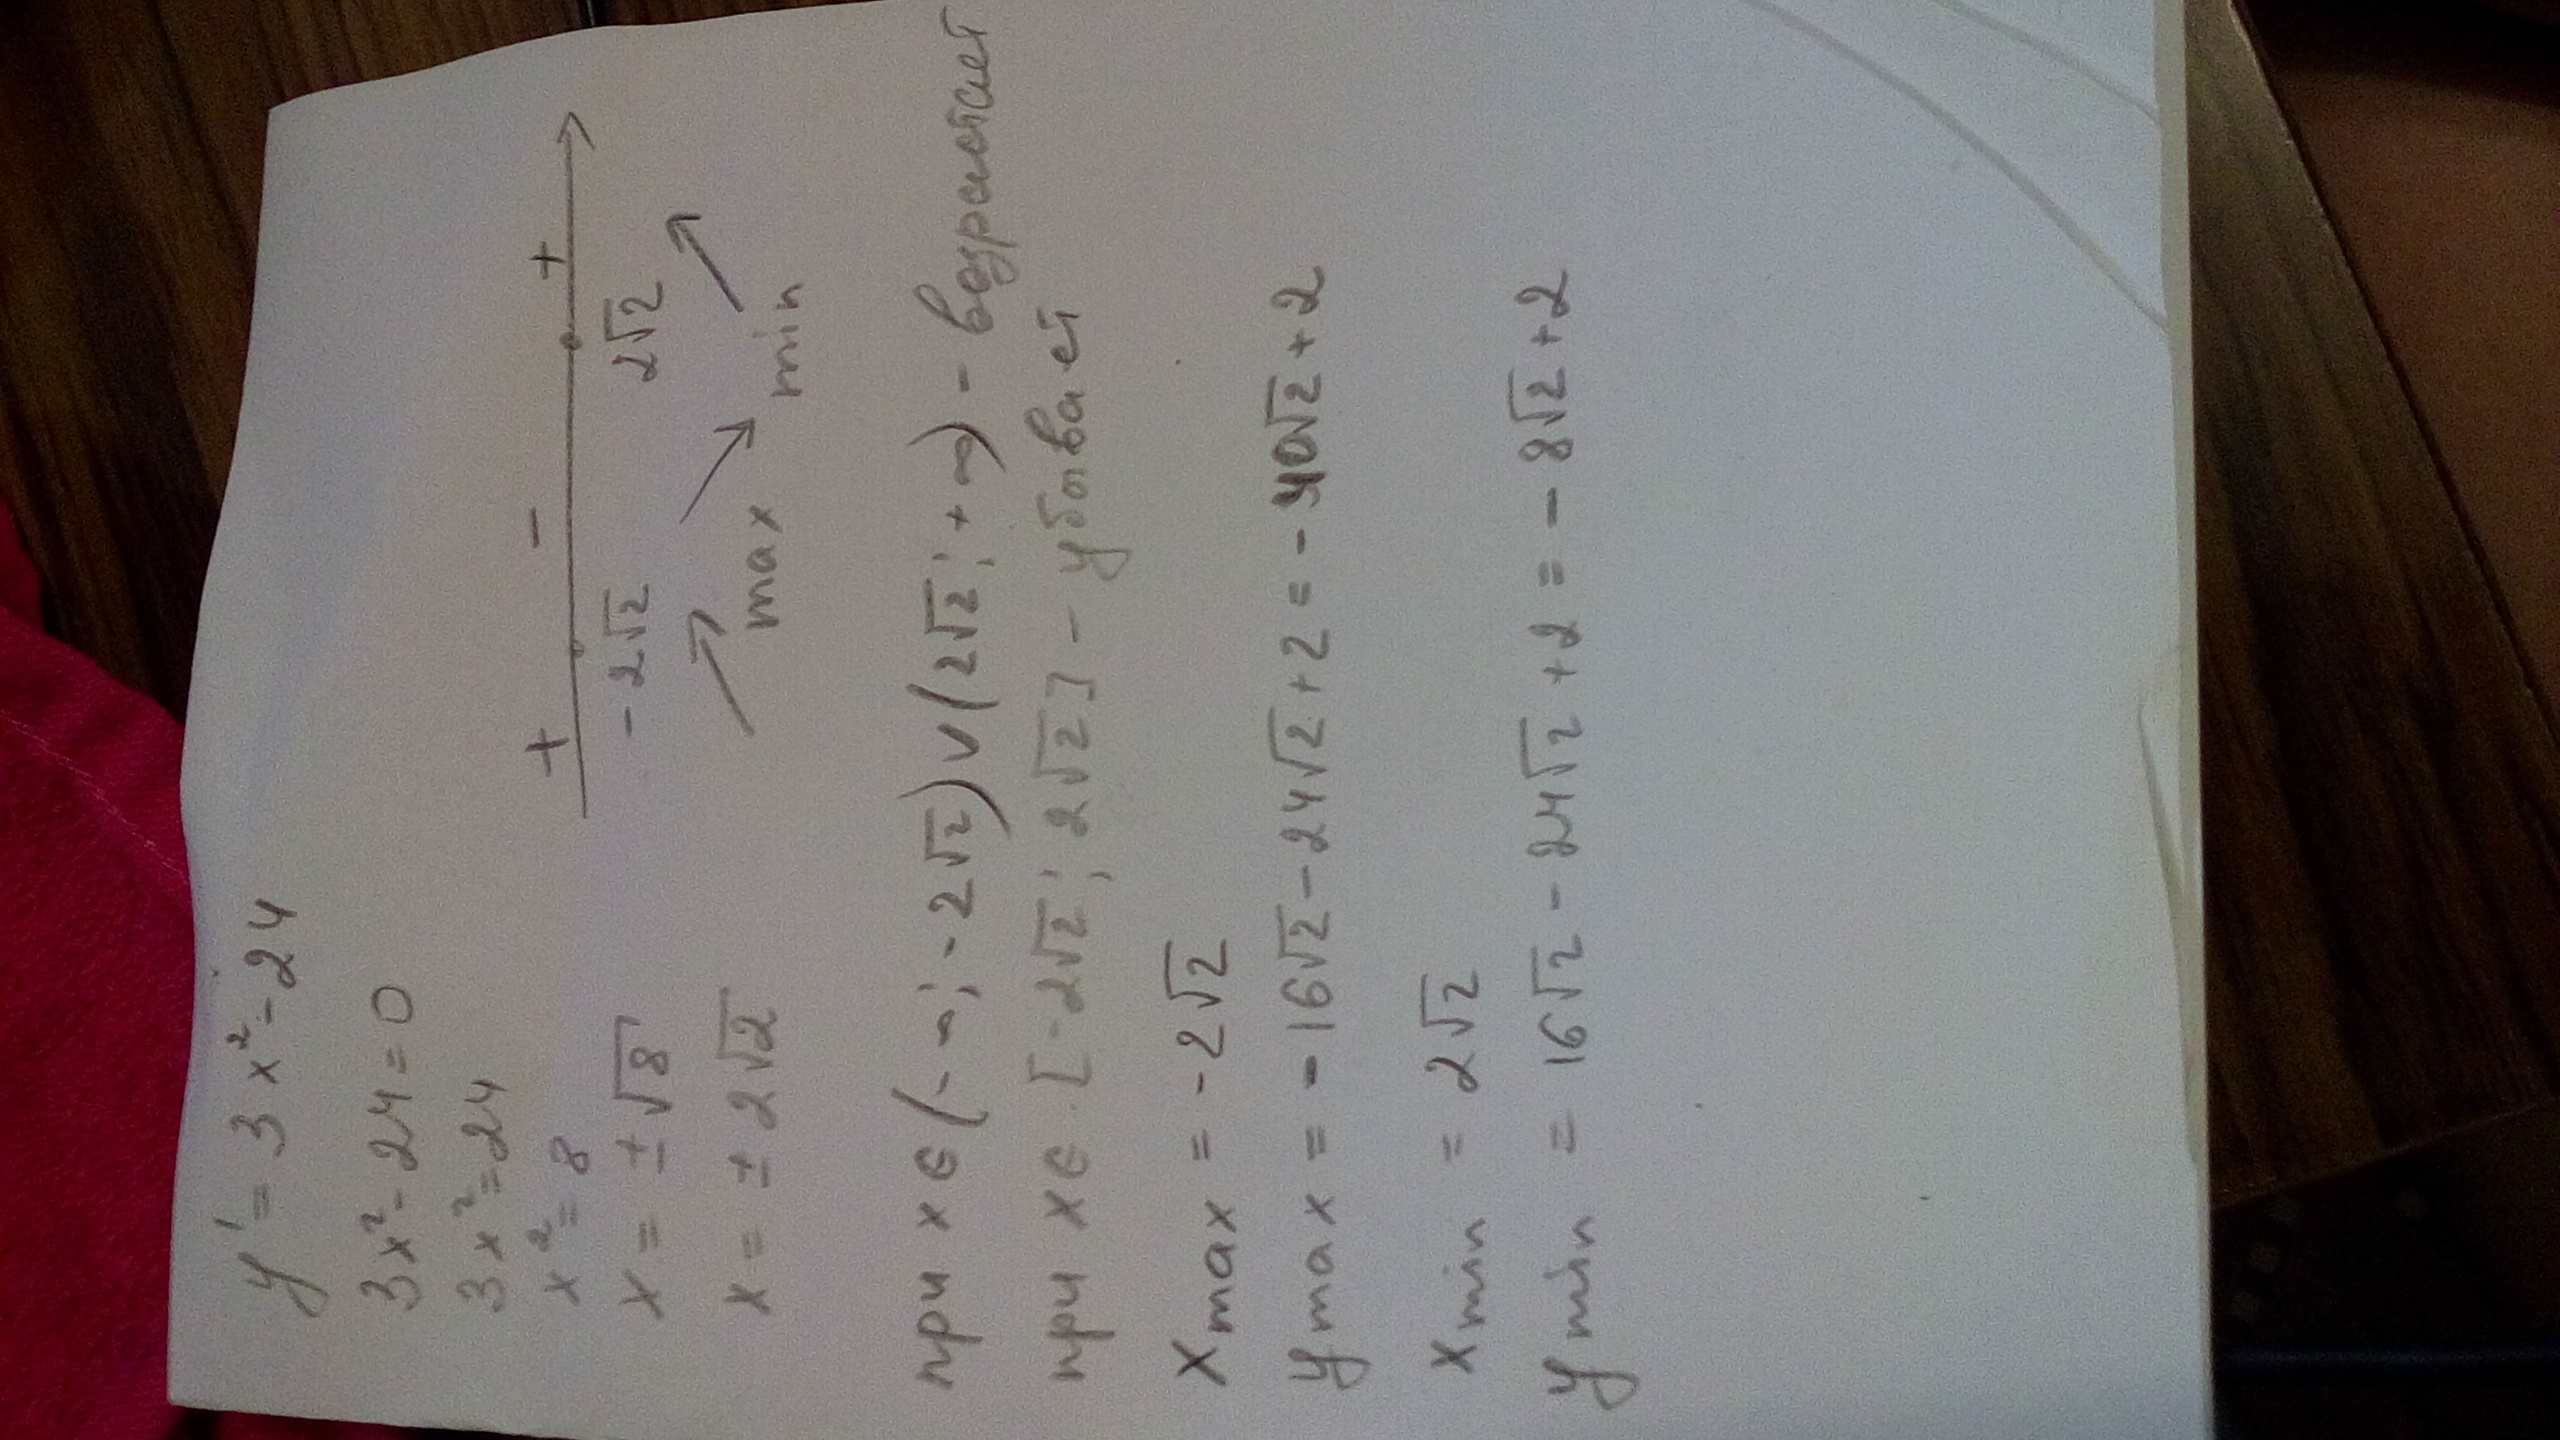 y' = 3x² - 24
3x² - 24 = 0
3x² = 24
x² = 8
x = ±√8
x = ±2√2
+ - +
-2√2 2√2
max min
при x ∈ (-∞; -2√2) ∨ (2√2; +∞) - возрастает
при x ∈ [-2√2; 2√2] - убывает
xmax = -2√2
ymax = -16√2 - 24√2 + 2 = -40√2 + 2
xmin = 2√2
ymin = 16√2 - 24√2 + 2 = -8√2 + 2